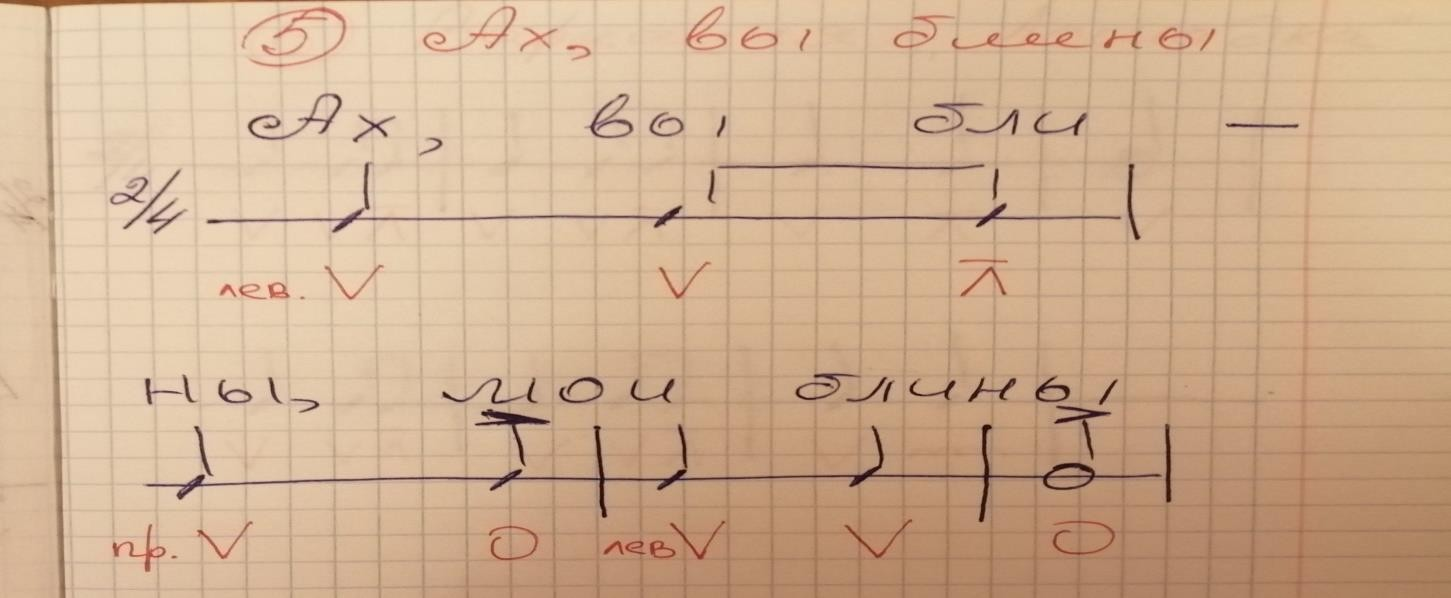 5 Ах, вы блины
Ах, вы бли —
2/4
лев. V V Λ
ны, мои блины
пр. V О лев V V О